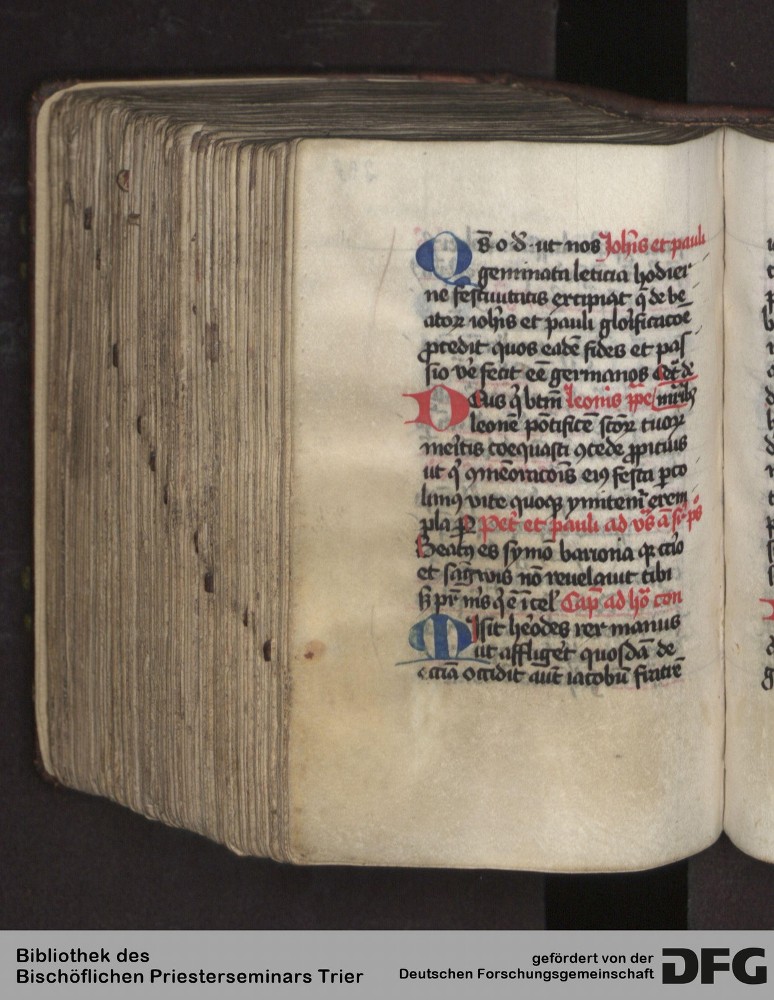 Qs̄ o d̄ ut nos Joh̄is et pauli
geminata leticia hodier
ne festiuitatis excipiat q̄ de be
atoꝝ ioh̄is et pauli glōificacōe
ꝓcedit quos eadē fides et pas
sio ve᷑ fecit eē germanos
Deus q̄ btm̄ leonis ppe
leonē pōtificē sctōꝝ tuoꝝ
me᷑itis coequasti ꝯcede ꝓpicius
ut q̄ ꝯmēoracōis eiꝰ festa ꝑco
limꝰ vite quoqꝫ
pla ꝑ Pet᷑ et pauli ad
Beatꝰ es symō bariona qꝛ caro
et sāgwis nō reuelauit tibi
sꝫ pr̄ mꝰs q̄ ē ī cel᷑ Cap̄ ad
Misit he᷑odes rex manus
ut afflige᷑t quosdā de
ecc̄ia occidit aūt iacobū fratrē
Bibliothek des
Bischöflichen Priesterseminars Trier
gefördert von der
Deutschen Forschungsgemeinschaft
DFG